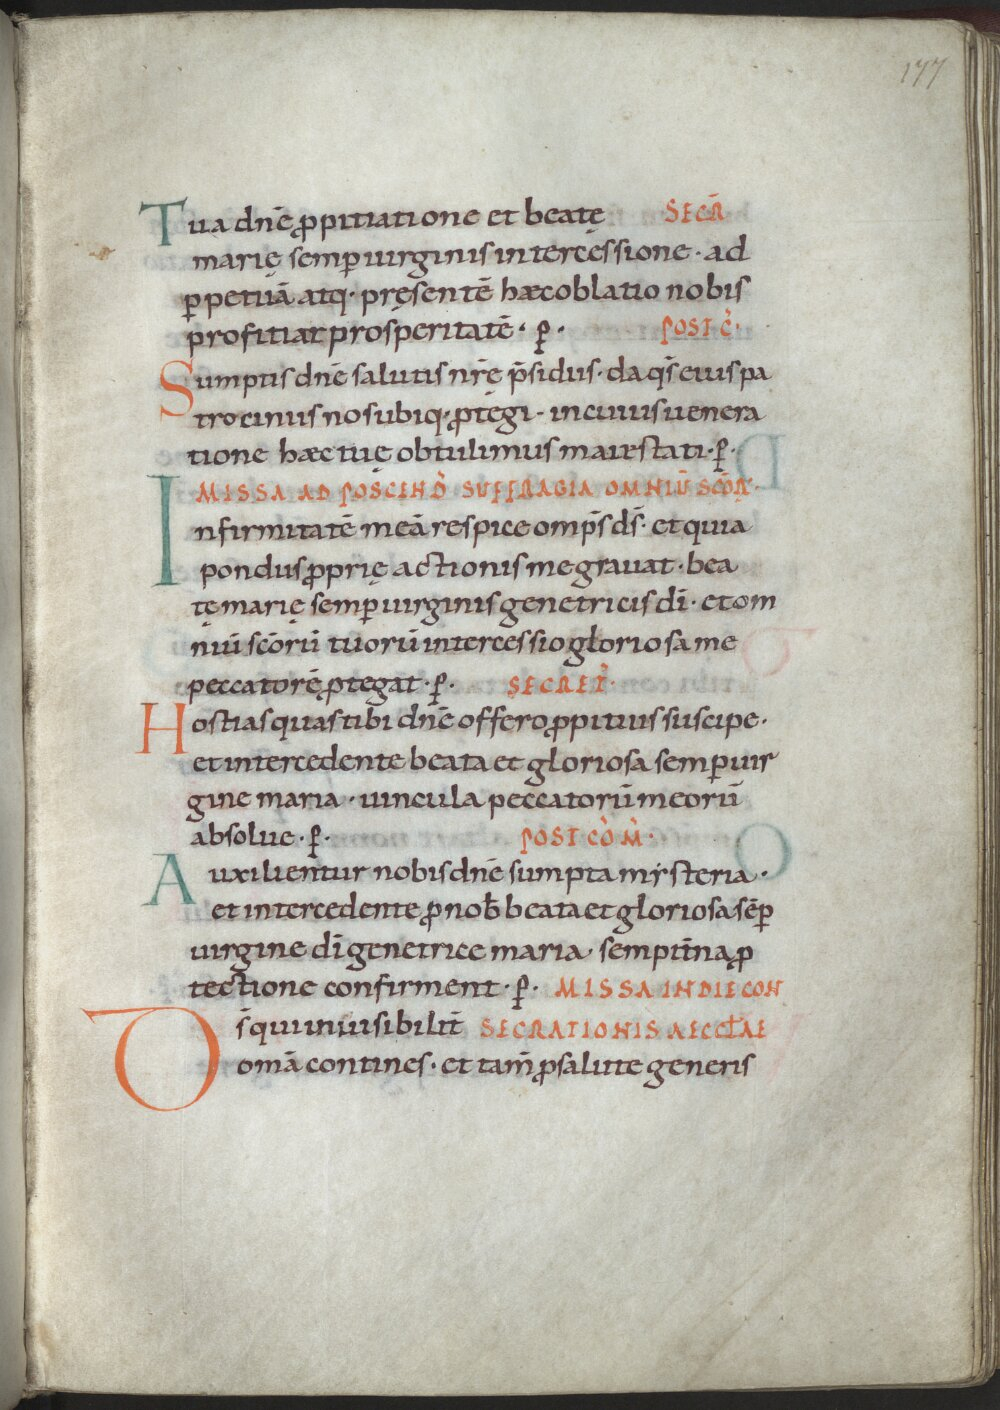 177
Tua dnē ꝓpitiatione et beatę SECR̄
marię semꝑ uirginis intercessione · ad
ꝑpetuā atq· pręsentē hæc oblatio nobis
proficiat prosperitatē · ꝑ · POST C̄·
Sumptis dnē salutis nr̄ę p̄sidiis · da qs̄ eius pa
trociniis nos ubiq· ꝓtegi · in cuius uenera
tione hæc tuę obtulimus maiestati · ꝑ ·
MISSA AD POSCEND̄ SUFFRAGIA OMNIŪ SC̄OR̄·
Infirmitatē meā respice omp̄s ds̄ · et quia
pondus ꝓprię actionis me grauat · bea
tę marię semꝑ uirginis genetricis dī · et om
niū sc̄orū tuorū intercessio gloriosa me
peccatorē ꝓtegat · ꝑ · SECRET̄·
Hostias quas tibi dnē offero ꝓpitius suscipe ·
et intercedente beata et gloriosa semꝑ uir
gine maria · uincula peccatorū meorū
absolue · ꝑ · POST CŌM̄·
Auxilientur nobis dnē sumpta mysteria ·
et intercedente ꝓ nob̄ beata et gloriosa sēꝑ
uirgine dī genetrice maria · sempit̄na ꝓ
tectione confirment · ꝑ · MISSA IN DIE CON
Ds̄ qui inuisibilit̄ SECRATIONIS AECCL̄AE
omā contines · et tam̄ ꝓ salute generis